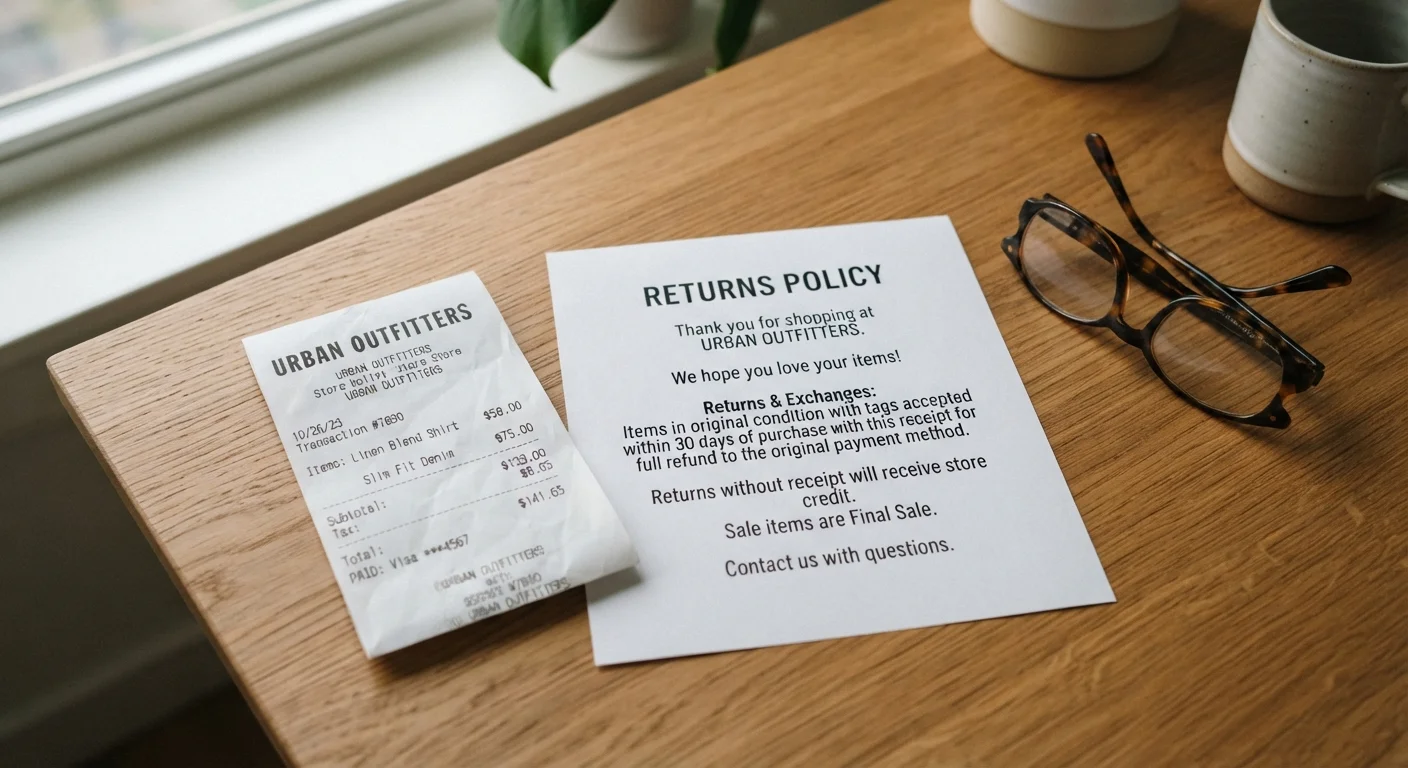 URBAN OUTFITTERS
URBAN OUTFITTERS
Store
URBAN OUTFITTERS
10/26/23
Transaction #7890
Items: Linen Blend Shirt $58.00
Slim Fit Denim $75.00
Subtotal: $133.00
Tax: $8.65
Total: $141.65
PAID: Visa ****4567
URBAN OUTFITTERS
URBAN OUTFITTERS
RETURNS POLICY
Thank you for shopping at
URBAN OUTFITTERS.
We hope you love your items!
Returns & Exchanges:
Items in original condition with tags accepted
within 30 days of purchase with this receipt for
full refund to the original payment method.
Returns without receipt will receive store
credit.
Sale items are Final Sale.
Contact us with questions.